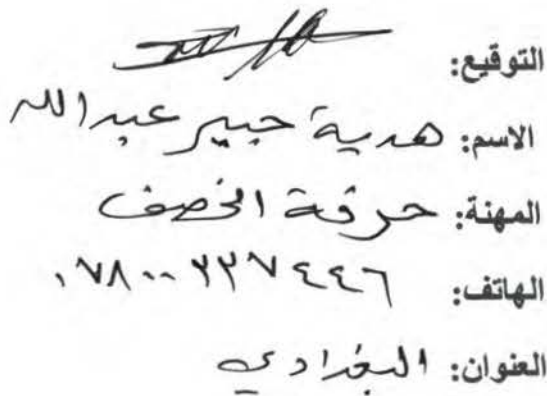 التوقيع:
الاسم: هدية جبير عبدالله
المهنة: حرفة الخصف
الهاتف: ٠٧٨٠٠٣٣٧٤٤٦
العنوان: البغدادي